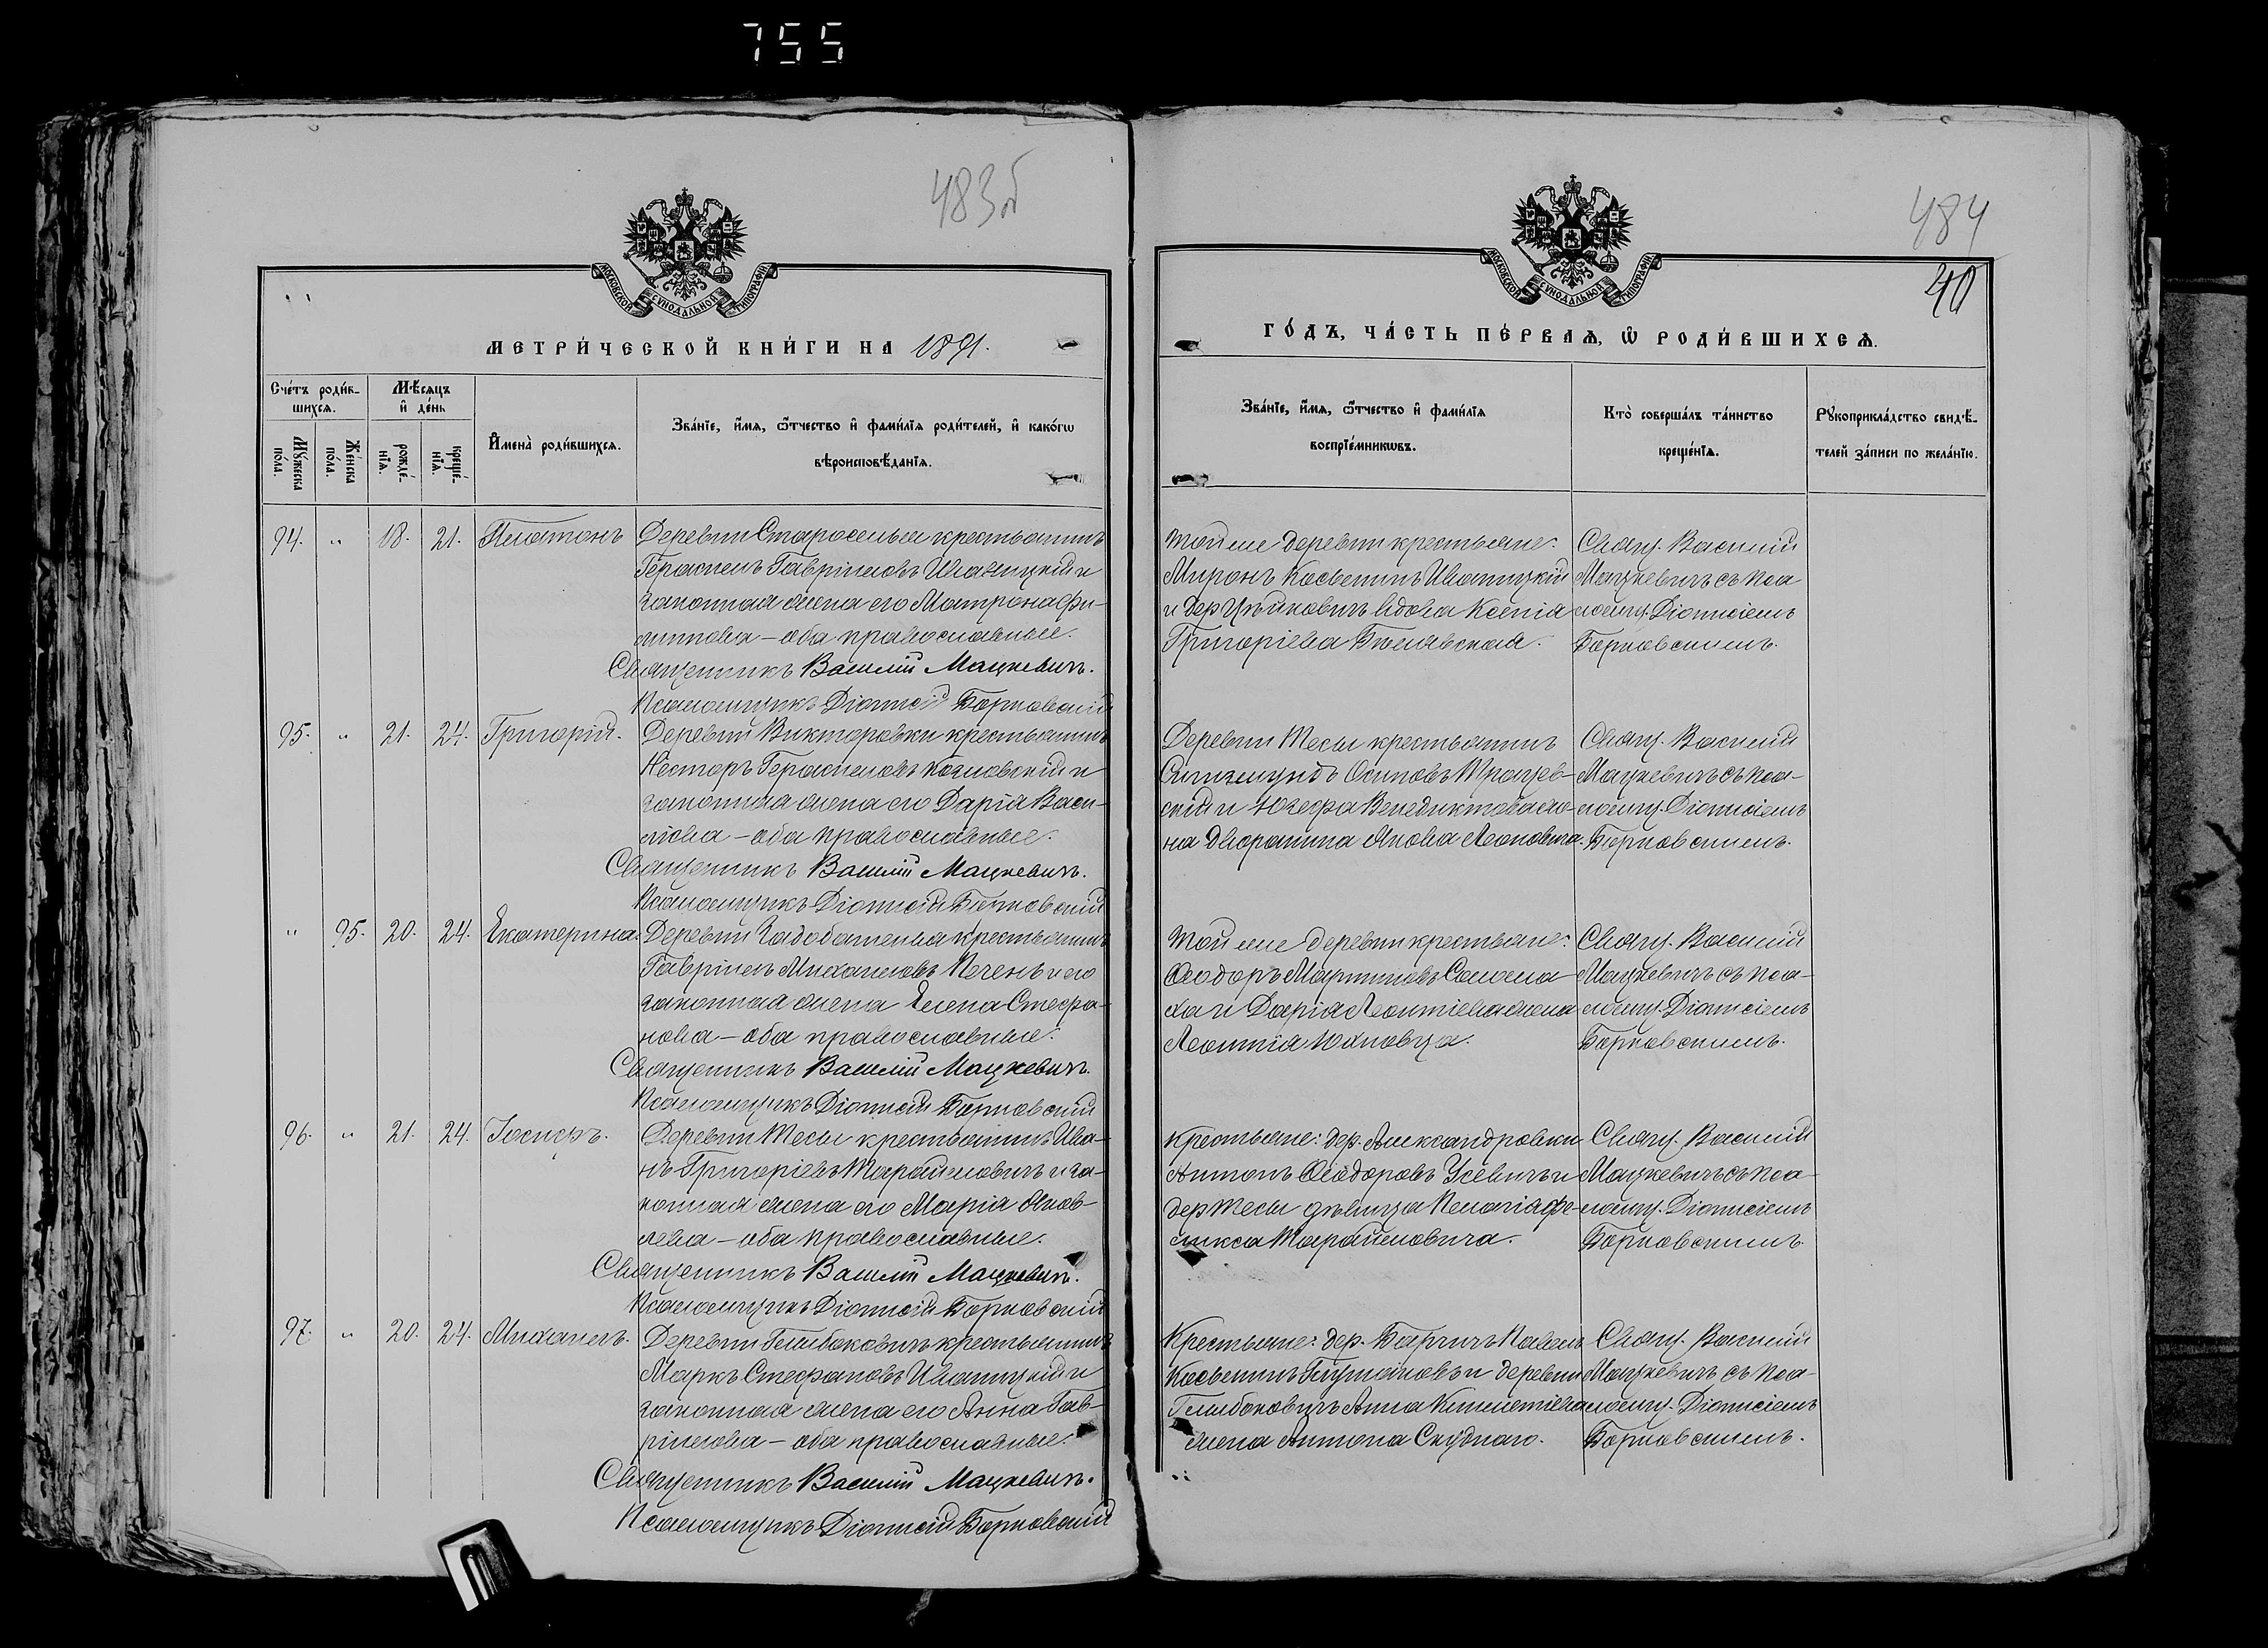 755
483об
484
40
МОСКОВСКОЙ СѴНОДАЛЬНОЙ ТИПОГРАФІИ
МОСКОВСКОЙ СѴНОДАЛЬНОЙ ТИПОГРАФІИ
МЕТРИ́ЧЕСКОЙ КНИ́ГИ НА 1891.
ГО́ДЪ, ЧА́СТЬ ПЕ́РВАѦ, Ѿ РОДИ́ВШИХСѦ.
Сче́тъ роди́в-
шихсѧ.
Мꙋ́жеска
по́ла.
Же́нска
по́ла.
Мѣ́сѧцъ
и҆ де́нь
рожде́-
нїѧ.
креще́-
нїѧ.
И҆мена̀ роди́вшихсѧ.
Зва́нїе, и҆́мѧ, ѻ҆́тчество и҆ фами́лїѧ роди́телей, и҆ како́гѡ
вѣроисповѣ́данїѧ.
Зва́нїе, и҆́мѧ, ѻ҆́тчество и҆ фами́лїѧ
воспрїе́мникѡвъ.
Кто̀ соверша́лъ та́инство
креще́нїѧ.
Рꙋкоприкла́дство свидѣ́-
телей за́писи по жела́нїю.
94. " 18. 21. Платонъ
Деревни Староселья крестьянинъ
Герасимъ Гавріиловъ Иваницкій и
законная жена его Матрона Фи-
липпова – оба православные.
Священникъ Василій Мацкевичъ.
Псаломщикъ Діонисій Борковскій
Той же деревни крестьяне:
Миронъ Косьминъ Иваницкій
и дер. вдова Ксенія
Григоріева Бѣлявская.
Свящ. Василій
Мацкевичъ съ пса
ломщ. Діонисіемъ
Борковскимъ.
95. " 21. 24. Григорій.
Деревни Викторовки крестьянинъ
Несторъ Герасимовъ Козловскій и
законная жена его Дарія Васи-
ліева – оба православные.
Священникъ Василій Мацкевичъ.
Псаломщикъ Діонисій Борковскій
Деревни Тесы крестьянинъ
Сигизмундъ Осиповъ
скій и Юзефа Венедиктова же-
на дворянина Якова Леоновича.
Свящ. Василій
Мацкевичъ съ пса-
ломщ. Діонисіемъ
Борковскимъ.
" 95. 20. 24. Екатерина.
Деревни крестьянинъ
Гавріилъ Михаиловъ Печень и его
законная жена Елена Стефа-
нова – оба православные.
Священникъ Василій Мацкевичъ.
Псаломщикъ Діонисій Борковскій
Той же деревни крестьяне:
Ѳеодоръ Мартиновъ Солома-
ха и Дарія Леонтіева жена
Леонтія Юхновца.
Свящ. Василій
Мацкевичъ съ пса-
ломщ. Діонисіемъ
Борковскимъ.
96. " 21. 24. Іосифъ.
Деревни Тесы крестьянинъ Ива-
нъ Григоріевъ Тарайлевичъ и за-
конная жена его Марія Яков-
лева – оба православные.
Священникъ Василій Мацкевичъ.
Псаломщикъ Діонисій Борковскій
Крестьяне: дер. Александровки
Антонъ Ѳеодоровъ Усевичъ и
дер Тесы дѣвица Пелагія Фе-
ликса Тарайлевича.
Свящ. Василій
Мацкевичъ съ пса-
ломщ. Діонисіемъ
Борковскимъ.
97. " 20. 24. Михаилъ.
Деревни Глибоковичъ крестьянинъ
Маркъ Стефановъ Иваницкій и
законная жена его Анна Гав-
ріилова – оба православные.
Священникъ Василій Мацкевичъ.
Псаломщикъ Діонисій Борковскій
Крестьяне: дер. Павелъ
Косьминъ и деревни
Глибоковичъ Анна Климентіева
жена Антона Скуднаго.
Свящ. Василій
Мацкевичъ съ пса-
ломщ. Діонисіемъ
Борковскимъ.